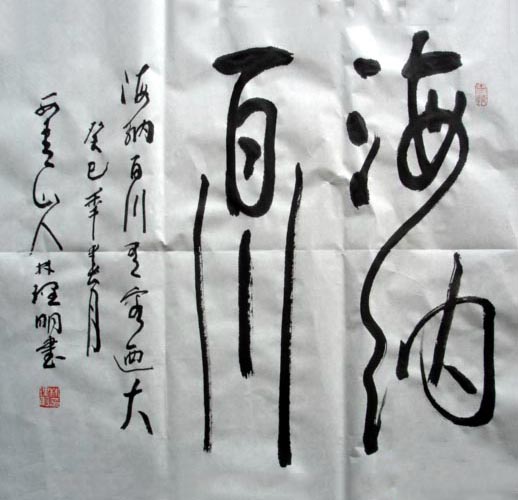 海纳
百川
海纳百川有容迺大
癸巳年春月
山人林明书